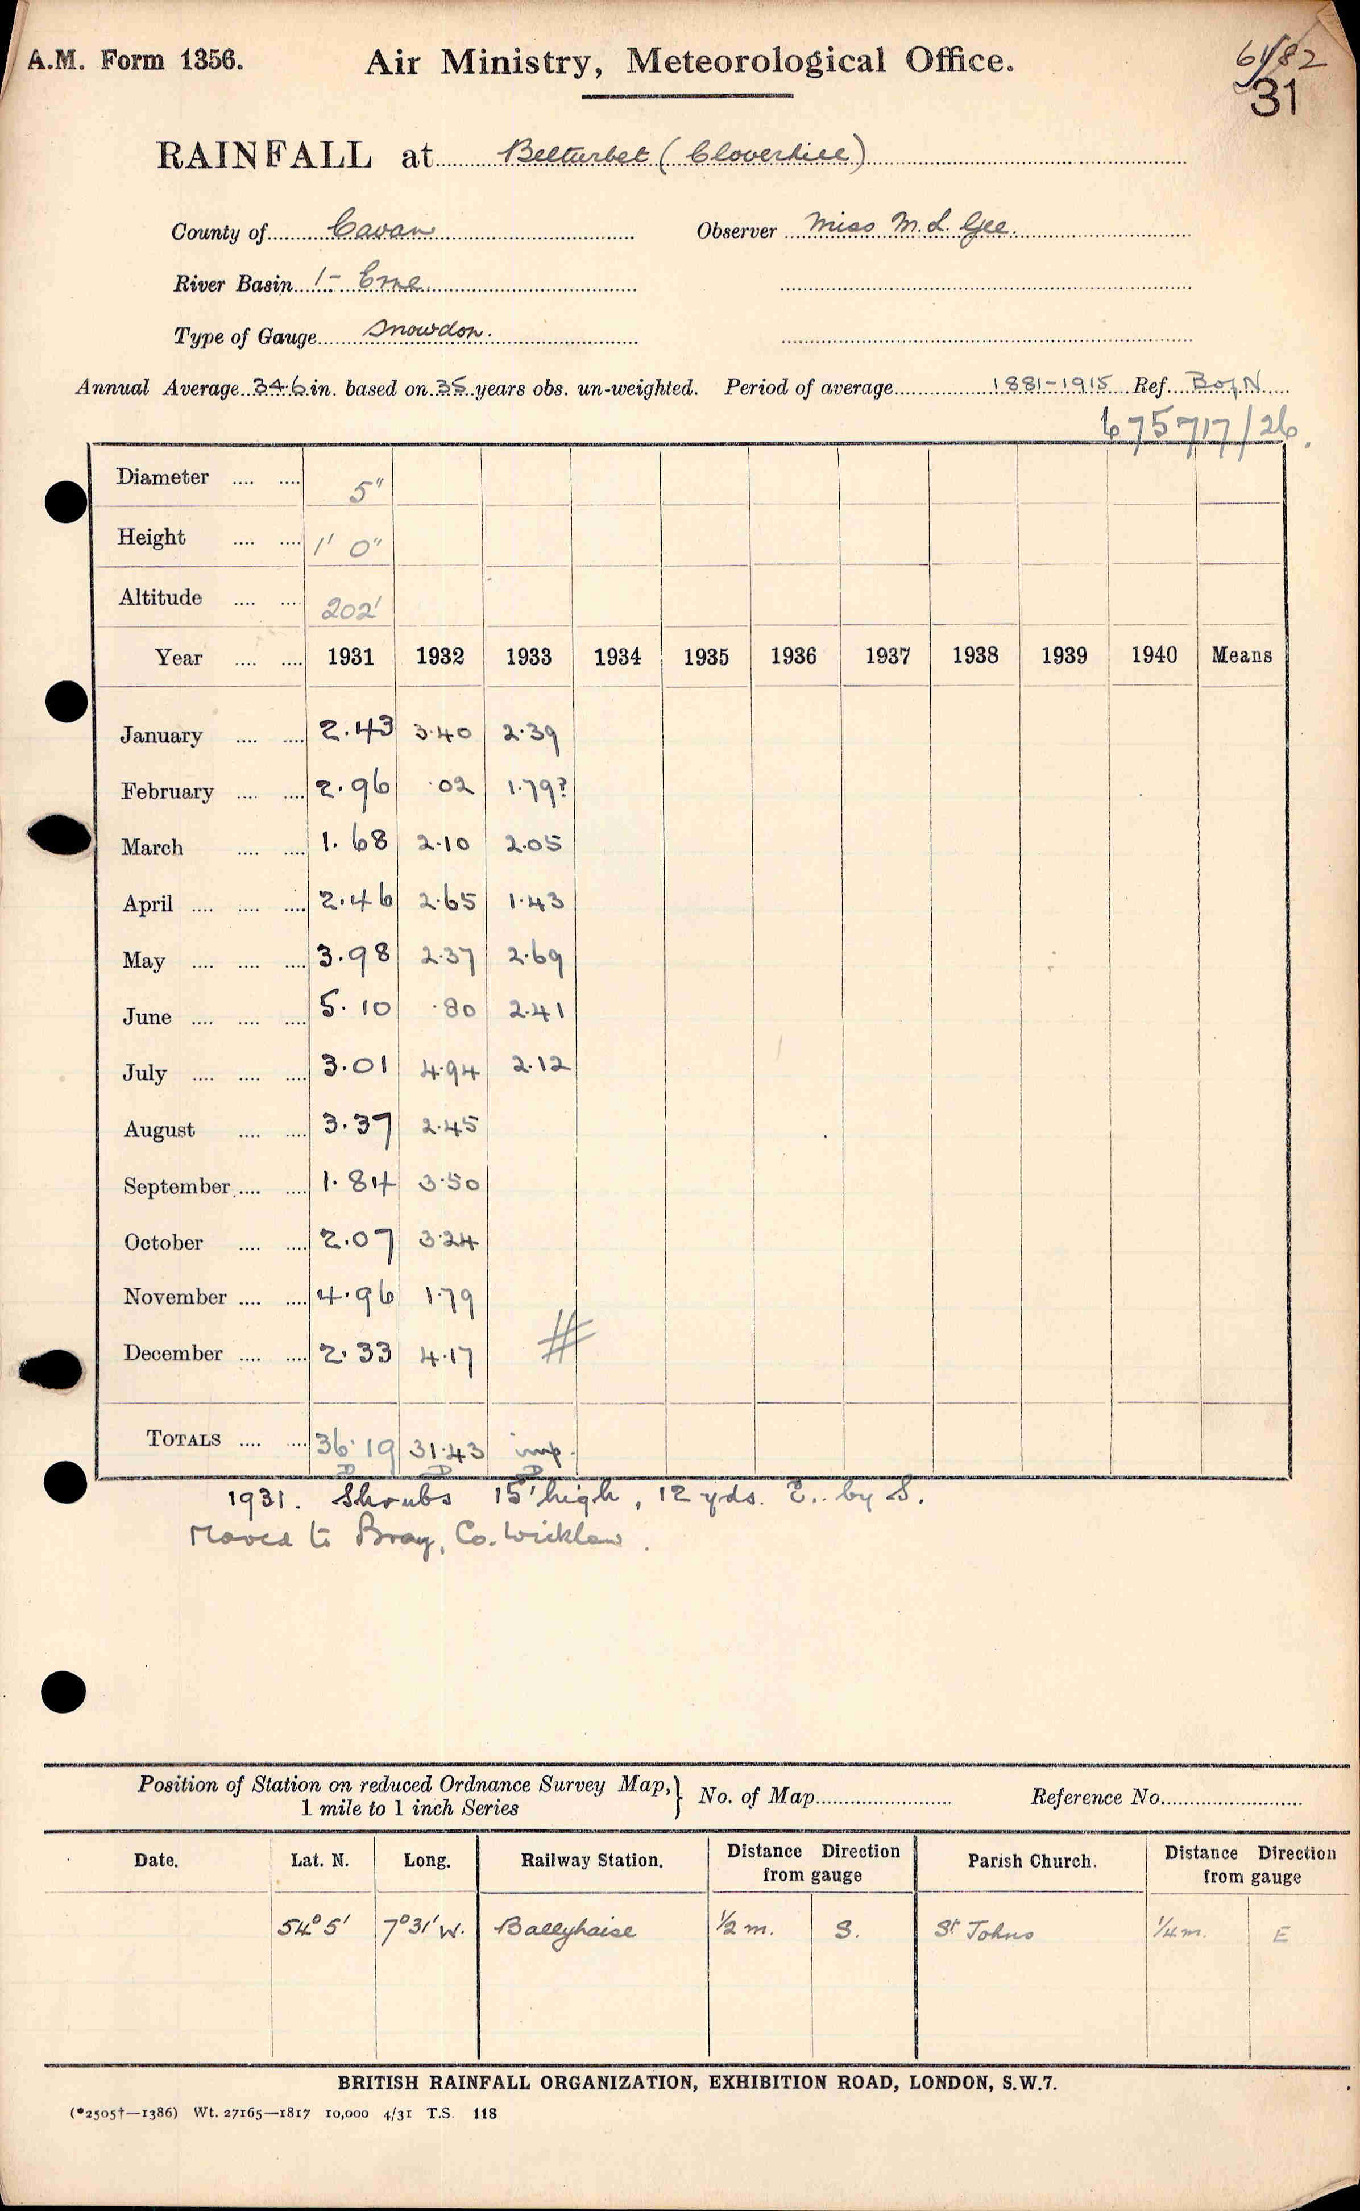 A.M. Form 1356.
Air Ministry, Meteorological Office.
31
RAINFALL at Belturbet (Cloverhill)
County of Cavan Observer Miss M. L. Gee.
River Basin 1- Erne
Type of Gauge Snowdon.
Annual Average 34.6 in. based on 35 years obs. un-weighted. Period of average 1881-1915 Ref. B of N
675717/26.
Diameter .... .... 5"
Height .... .... 1' 0"
Altitude .... .... 202'
Year .... .... 1931 1932 1933 1934 1935 1936 1937 1938 1939 1940 Means
January .... .... 2.43 3.40 2.39
February .... .... 2.96 .02 1.79?
March .... .... 1.68 2.10 2.05
April .... .... .... 2.46 2.65 1.43
May .... .... .... 3.98 2.37 2.69
June .... .... .... 5.10 .80 2.41
July .... .... .... 3.01 4.94 2.12
August .... .... 3.37 2.45
September .... .... 1.84 3.50
October .... .... 2.07 3.24
November .... .... 4.96 1.79
December .... .... 2.33 4.17 #
TOTALS .... .... 36.19 31.43 imp.
D D D
1931. Shrubs 15' high, 12 yds. E. by S.
Moved to Bray, Co. Wicklow.
Position of Station on reduced Ordnance Survey Map, } No. of Map Reference No.
1 mile to 1 inch Series
Date. Lat. N. Long. Railway Station. Distance Direction from gauge Parish Church. Distance Direction from gauge
54° 5' 7° 31' W. Ballyhaise 1/2 m. S. St Johns 1/4 m. E
BRITISH RAINFALL ORGANIZATION, EXHIBITION ROAD, LONDON, S.W.7.
(*2505†—1386) Wt. 27165—1817 10,000 4/31 T.S. 118